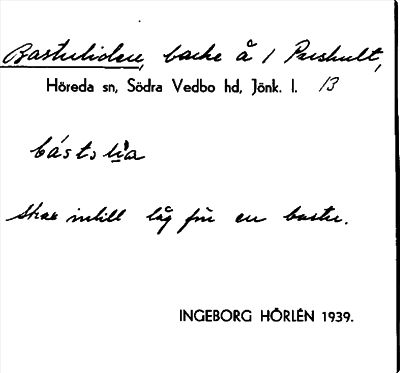 Bastulioleu, backe å 1 Pershult,
Höreda sn, Södra Vedbo hd, Jönk. l. 13
bástɔlìa
Strax intill låg förr en bastu.
INGEBORG HÖRLÉN 1939.